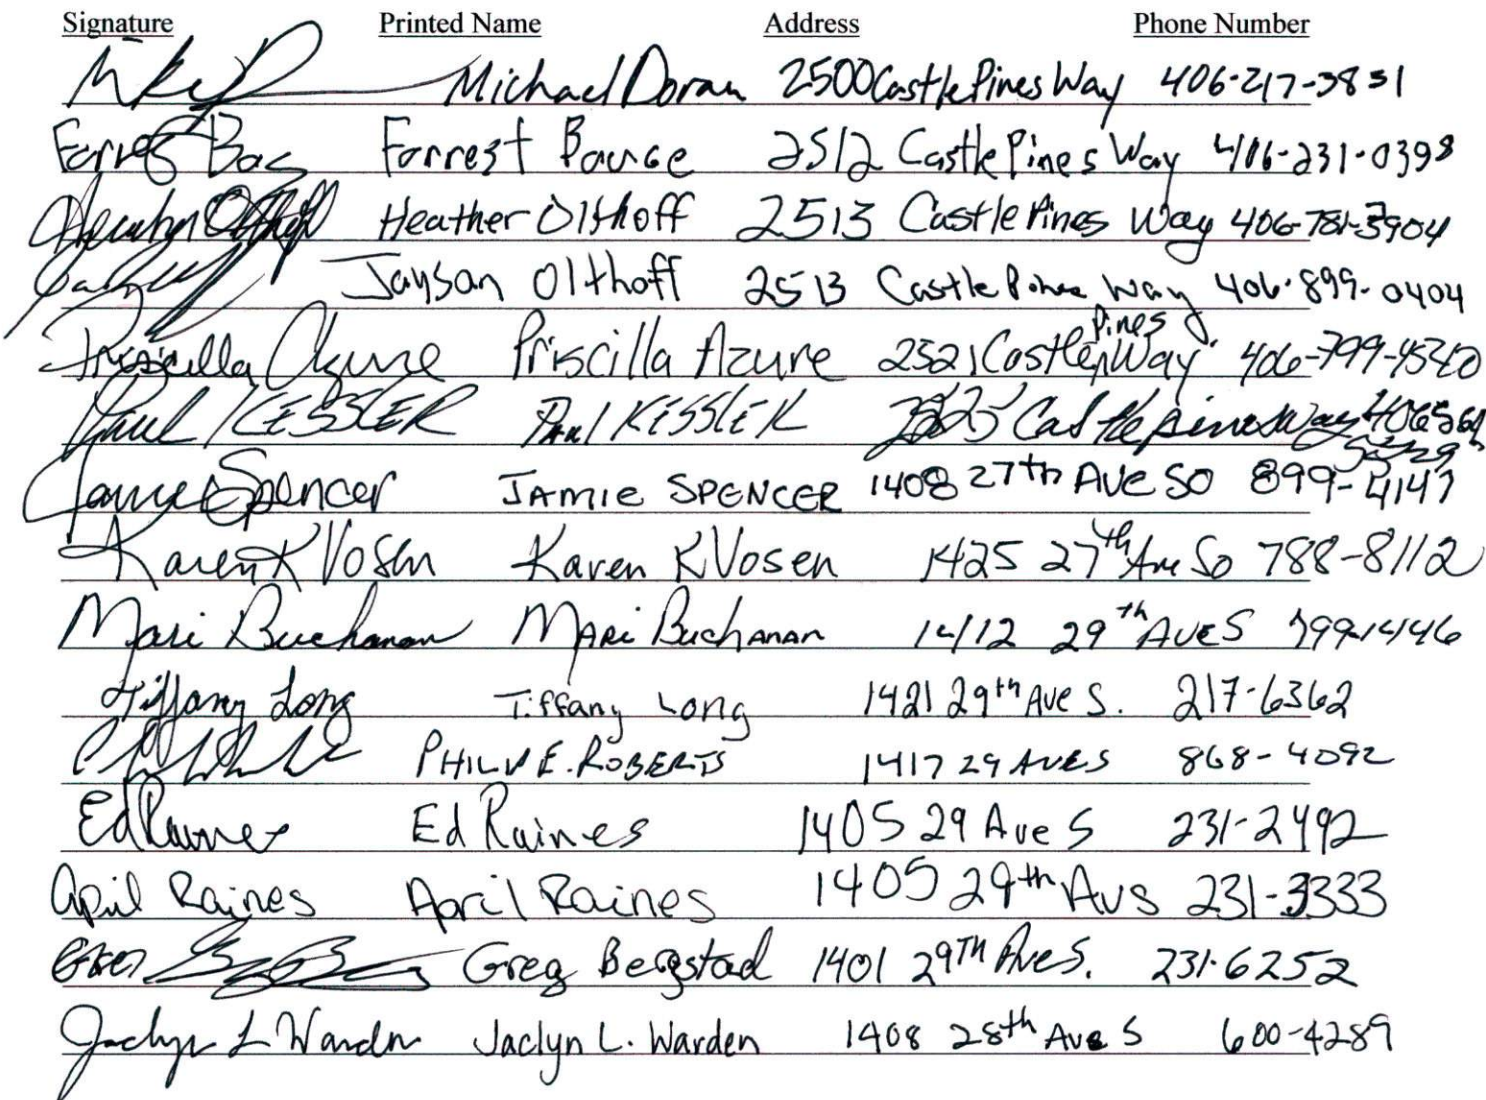 Signature Printed Name Address Phone Number
Michael Doran 2500 Castle Pines Way 406-217-3831
Forrest Forrest Bource 2512 Castle Pines Way 406-231-0398
Heather Olthoff Heather Olthoff 2513 Castle Pines Way 406-781-3904
Jayson Olthoff 2513 Castle Pines Way 406-899-0404
Priscilla Azure Priscilla Azure 2521 Castle Pines Way 406-799-4520
Paul KESSLER Paul KESSLER Castle pines way 406564
Jamie Spencer JAMIE SPENCER 1408 27th Ave SO 899-4147
Karen K Vosen Karen K Vosen 1425 27th Ave So 788-8112
Mari Buchanan MARi BuchANAN 1412 29th AVE S 799-1446
Tiffany Long Tiffany Long 1421 29th Ave S. 217-6362
PHILIP E. ROBERTS 1417 29 AVES 868-4092
Ed Raines Ed Raines 1405 29 Ave S 231-2492
April Raines April Raines 1405 29th Avs 231-3333
Greg Greg Bergstad 1401 29TH Ave S. 231-6252
Jaclyn L Warden Jaclyn L. Warden 1408 28th Ave S 600-4289